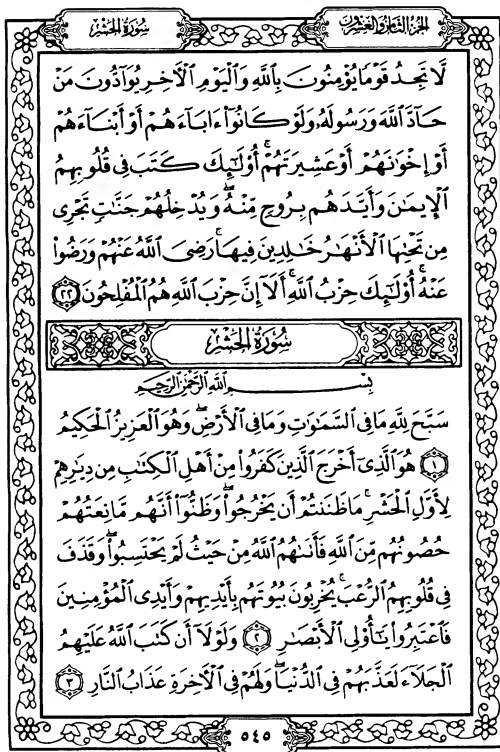 الجزء الثامن والعشرون
سورة الحشر
لَّا تَجِدُ قَوْمًا يُؤْمِنُونَ بِٱللَّهِ وَٱلْيَوْمِ ٱلْآخِرِ يُوَآدُّونَ مَنْ
حَآدَّ ٱللَّهَ وَرَسُولَهُۥ وَلَوْ كَانُوٓا۟ ءَابَآءَهُمْ أَوْ أَبْنَآءَهُمْ
أَوْ إِخْوَٰنَهُمْ أَوْ عَشِيرَتَهُمْ ۚ أُو۟لَٰٓئِكَ كَتَبَ فِى قُلُوبِهِمُ
ٱلْإِيمَٰنَ وَأَيَّدَهُم بِرُوحٍ مِّنْهُ ۖ وَيُدْخِلُهُمْ جَنَّٰتٍ تَجْرِى
مِن تَحْتِهَا ٱلْأَنْهَٰرُ خَٰلِدِينَ فِيهَا ۚ رَضِىَ ٱللَّهُ عَنْهُمْ وَرَضُوا۟
عَنْهُ ۚ أُو۟لَٰٓئِكَ حِزْبُ ٱللَّهِ ۚ أَلَآ إِنَّ حِزْبَ ٱللَّهِ هُمُ ٱلْمُفْلِحُونَ ٢٢
سُورَةُ الحَشْرِ
بِسْمِ ٱللَّهِ ٱلرَّحْمَٰنِ ٱلرَّحِيمِ
سَبَّحَ لِلَّهِ مَا فِى ٱلسَّمَٰوَٰتِ وَمَا فِى ٱلْأَرْضِ ۖ وَهُوَ ٱلْعَزِيزُ ٱلْحَكِيمُ
١ هُوَ ٱلَّذِىٓ أَخْرَجَ ٱلَّذِينَ كَفَرُوا۟ مِنْ أَهْلِ ٱلْكِتَٰبِ مِن دِيَٰرِهِمْ
لِأَوَّلِ ٱلْحَشْرِ ۚ مَا ظَنَنتُمْ أَن يَخْرُجُوا۟ ۖ وَظَنُّوٓا۟ أَنَّهُم مَّانِعَتُهُمْ
حُصُونُهُم مِّنَ ٱللَّهِ فَأَتَىٰهُمُ ٱللَّهُ مِنْ حَيْثُ لَمْ يَحْتَسِبُوا۟ ۖ وَقَذَفَ
فِى قُلُوبِهِمُ ٱلرُّعْبَ ۚ يُخْرِبُونَ بُيُوتَهُم بِأَيْدِيهِمْ وَأَيْدِى ٱلْمُؤْمِنِينَ
فَٱعْتَبِرُوا۟ يَٰٓأُو۟لِى ٱلْأَبْصَٰرِ ٢ وَلَوْلَآ أَن كَتَبَ ٱللَّهُ عَلَيْهِمُ
ٱلْجَلَآءَ لَعَذَّبَهُمْ فِى ٱلدُّنْيَا ۖ وَلَهُمْ فِى ٱلْآخِرَةِ عَذَابُ ٱلنَّارِ ٣
٥٤٥